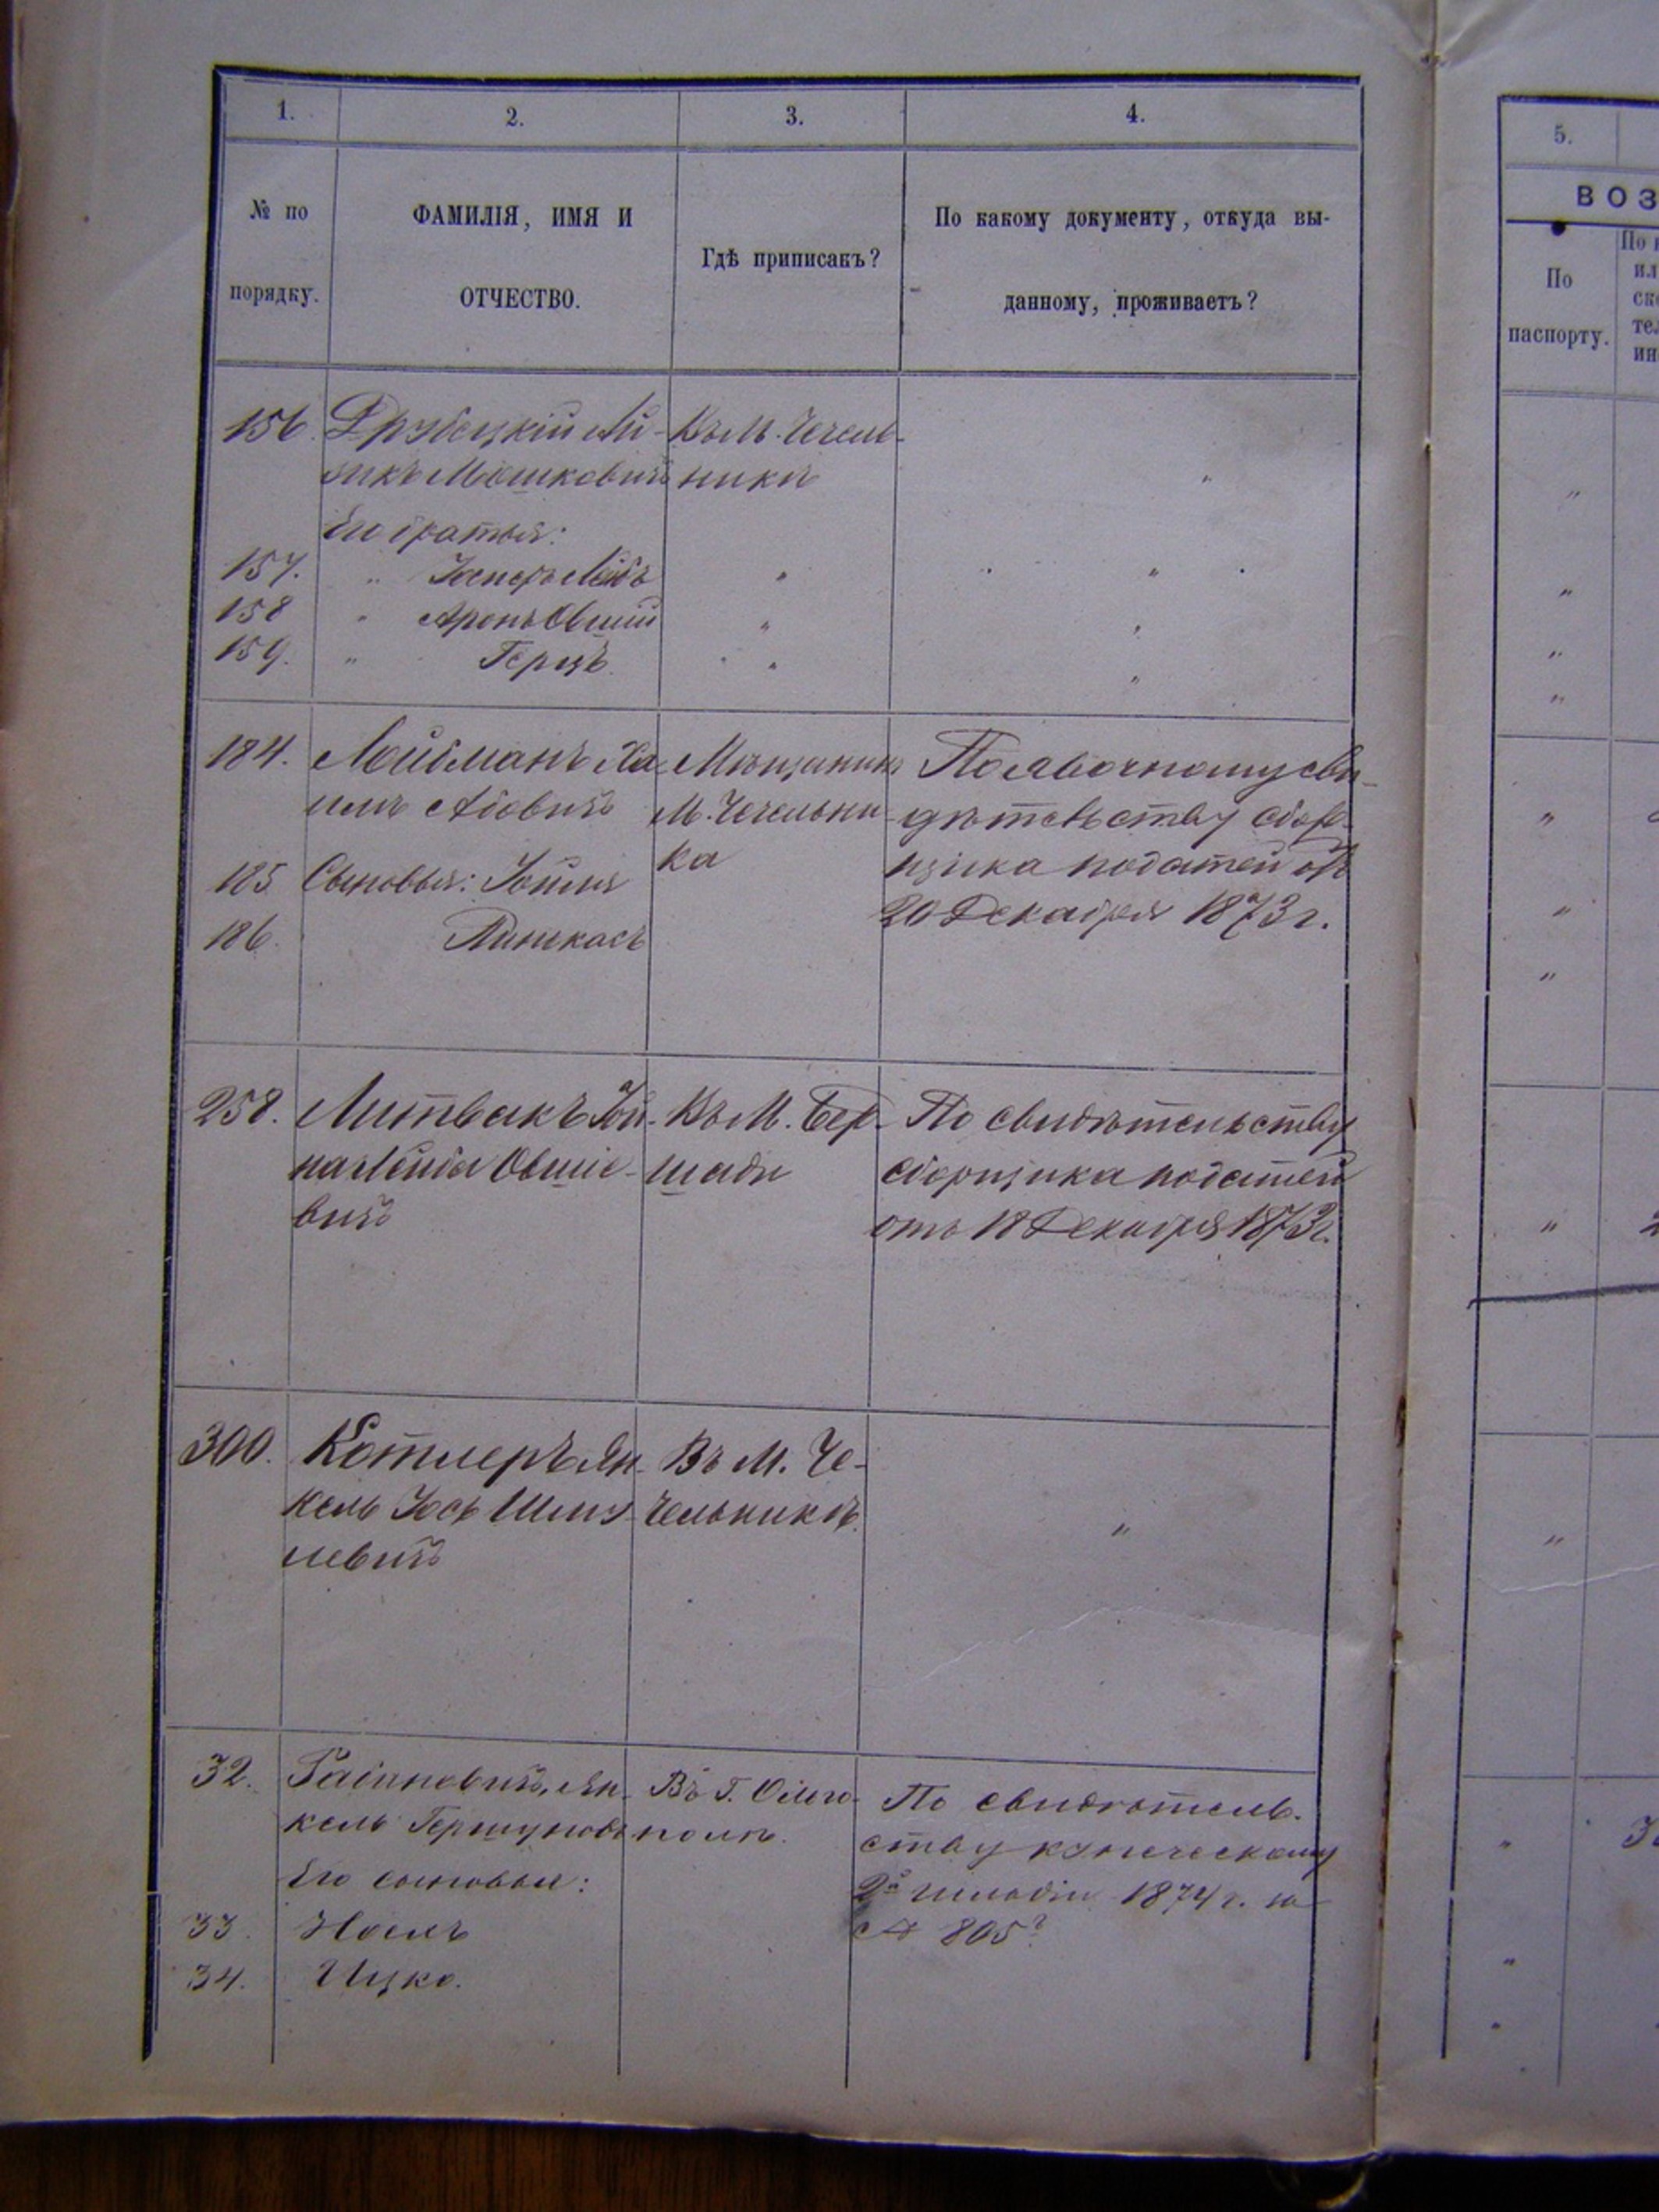 1. 2. 3. 4.
№ по порядку.
ФАМИЛІЯ, ИМЯ И
ОТЧЕСТВО.
Гдѣ приписанъ?
По какому документу, откуда вы-
данному, проживаетъ?
5.
ВОЗ
По
паспорту.
156. Друбецкій Ай-
зикъ Мошковичъ
Въ М. Чечель-
никѣ
"
Его братья:
157. " Лейбъ " "
158 " Аронъ Овшій " "
159. " Герцъ. " "
184. Лойбманъ Ха
имъ Абовичъ
Мѣщанинъ
М. Чечельни-
ка
По явочному сви-
дѣтельству сбор-
щика податей отъ
20 Декабря 1873 г.
185 Сыновья:
186. Пинкасъ
258. Литвакъ
Лейба Овшіе-
вичъ
Въ М. Бер-
шади
По свидѣтельству
сборщика податей
отъ 18 Декабря 1873 г.
300. Котлеръ Ян-
кель Іосъ Шму-
левичъ
Въ М. Че-
чельникѣ.
"
32. Рабиновичъ, Ян-
кель Гершуновъ
Въ Г. Ольго-
полѣ.
По свидѣтель-
ству купеческому
2й гильдіи 1874 г. за
№ 805
Его сыновья:
33.
34. Ицко.